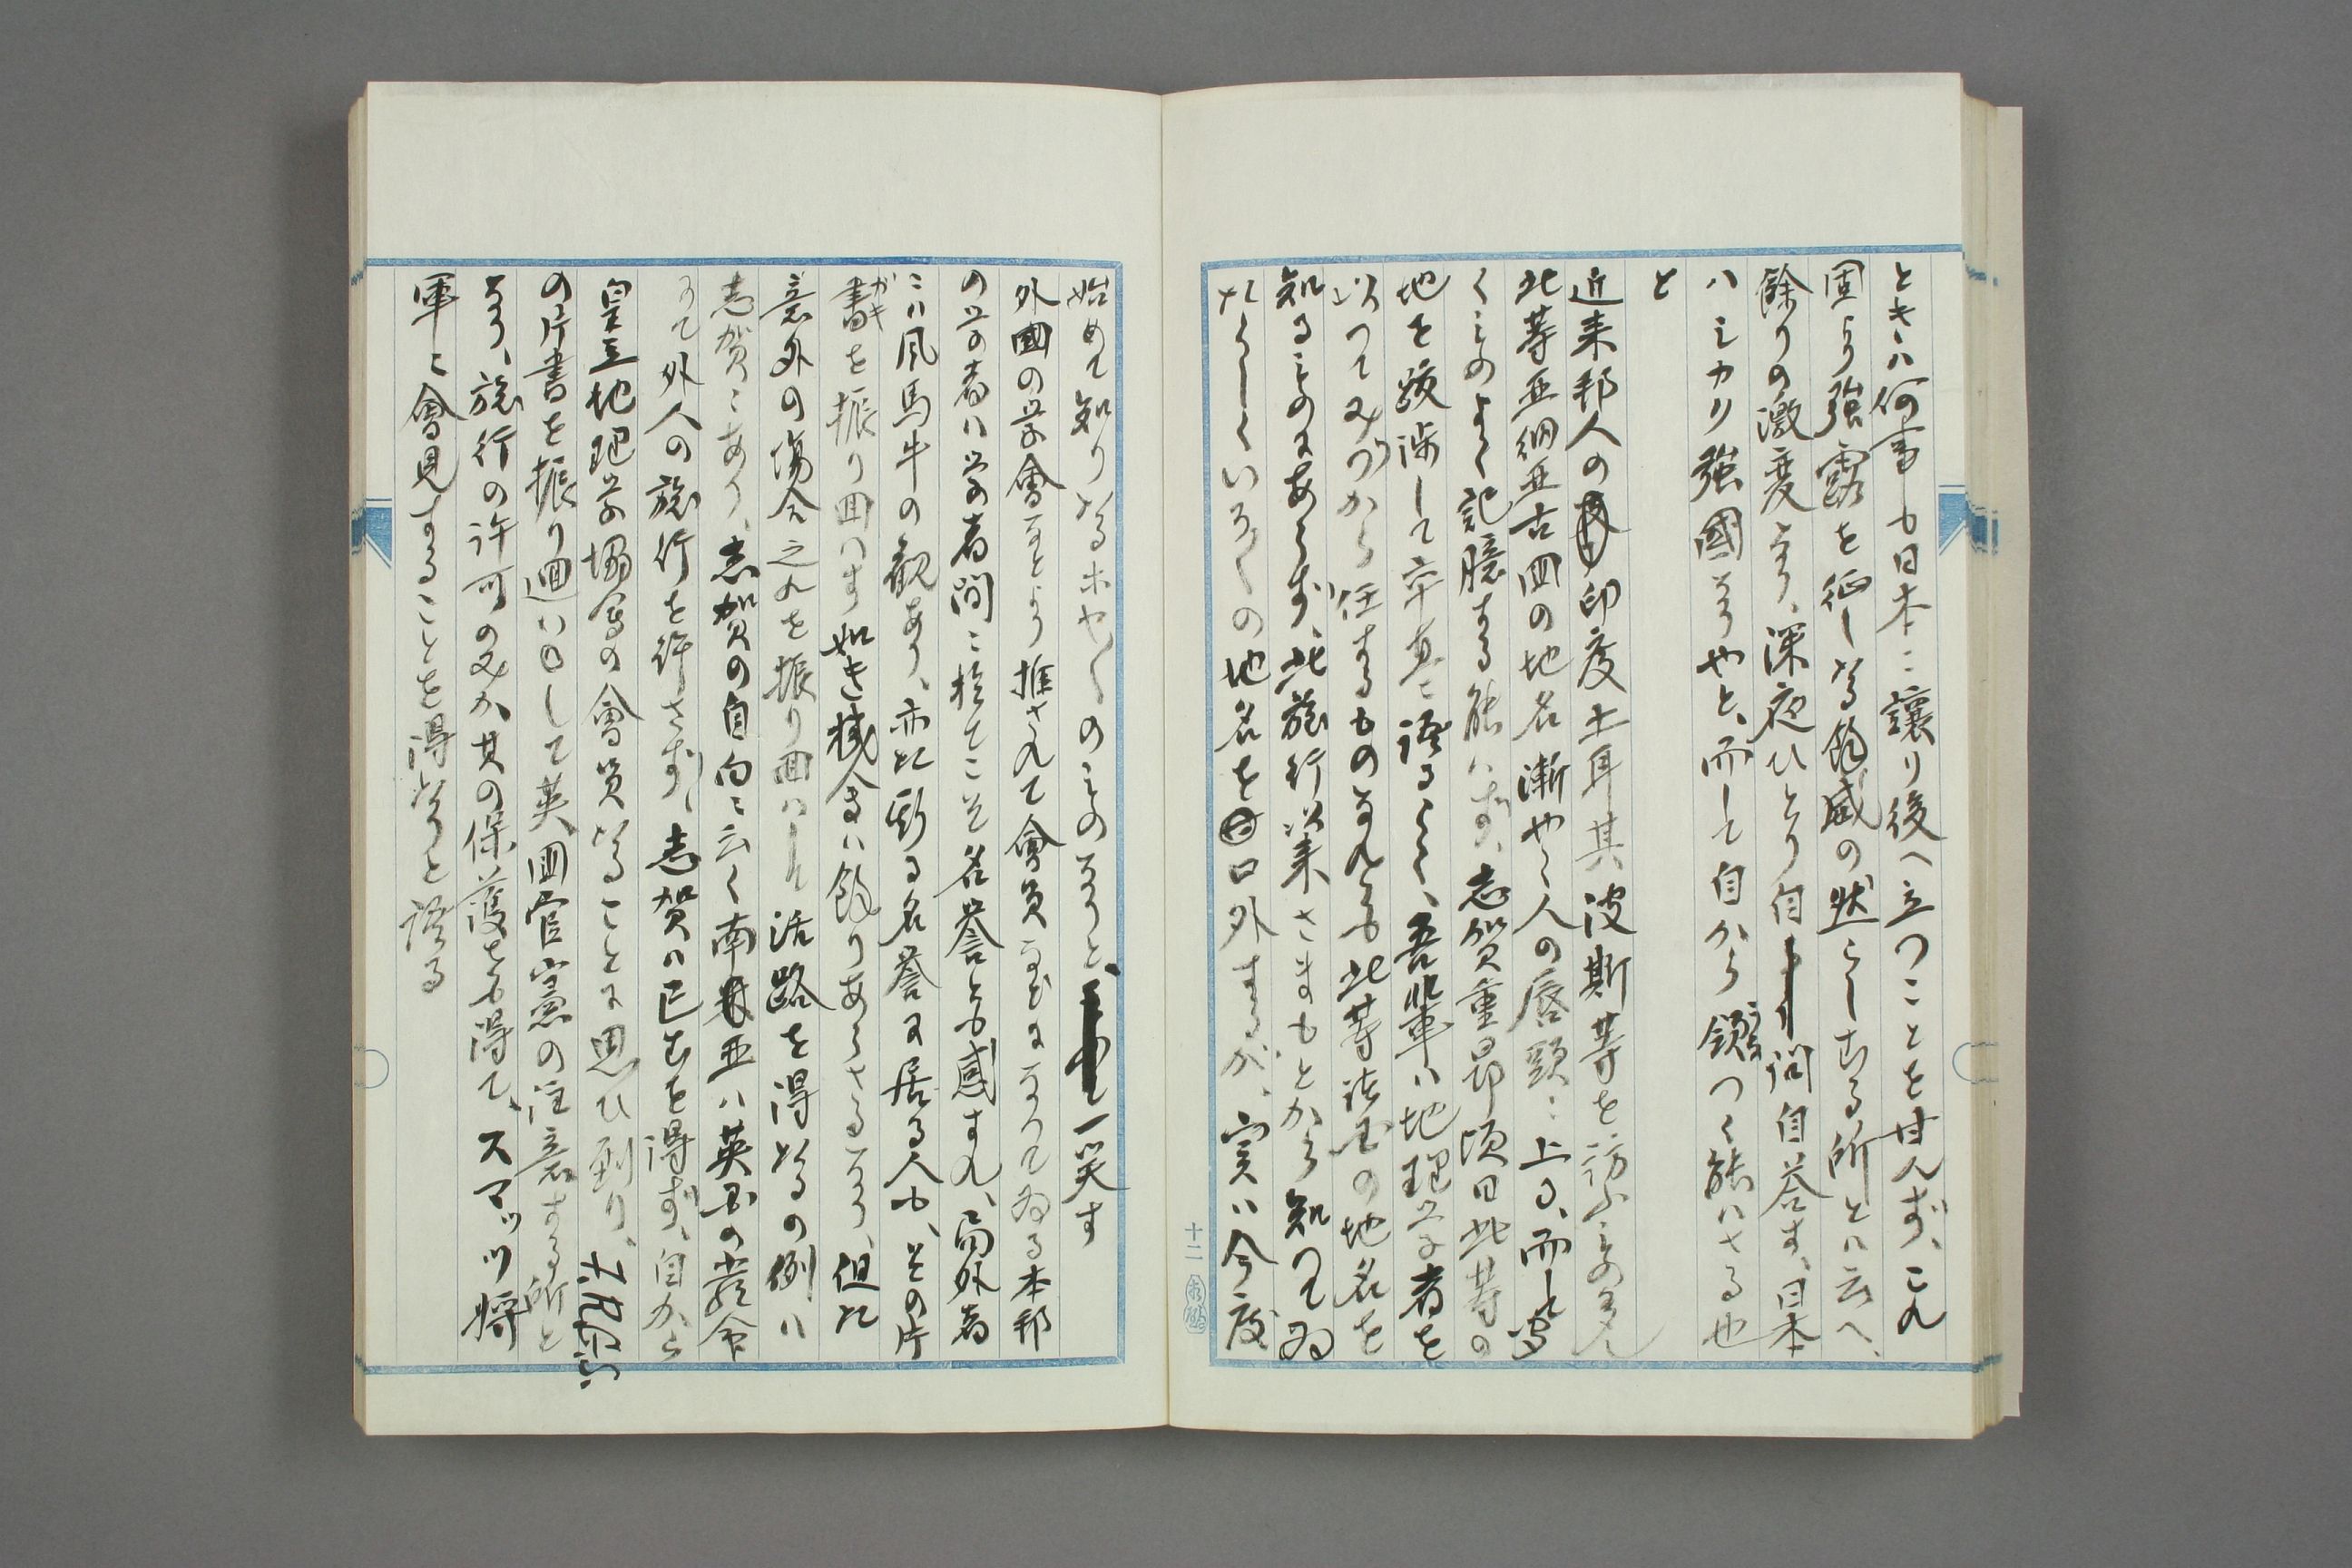 ときハ何事も日本ニ譲り後へ立つことを甘んず、これ
固より強露を征したる餘威の然らしむる所とハ云へ、
餘りの激変なり、深夜ひとり自問自答す、日本
ハシカク強國なりやと、而して自から領つく能ハさる也
と
近来邦人の印度土耳其波斯等を訪ふもの多く
此等亜細亜古国の地名漸やく人の唇頭ニ上る、而し
くものよく記臆する能ハず、志賀重昂頃日此等の
地を跋渉して卒業ニ語るらく、吾輩ハ地理学者を
以つてみづから任するものなれども此等諸国の地名を
知るものにあらず、此旅行以来さまもとから知つてゐ
たらしくいろいろの地名を口外するが、実ハ今度
始めて知りたるホヤホヤのものなりと、一笑す
外國の学会などより推されて會員などになつてゐる本邦
の学者ハ学者間ニ於てこそ名誉とも感すれ、局外者
ニハ風馬牛の観あり、亦た斯る名誉に居る人も、その片
書ガキを振り回はす如き機会ハ餘りあらさるなり、但た
意外の場合之れを振り回ハして活路を得たるの例ハ
志賀ニあり、志賀の自白ニ云く南亜ハ英国の意合
にて外人の旅行を許さず、志賀ハ已むを得ず、自から
皇立地理学協会の會員たることに思ひ到り、
の片書を振り廻ハして英国官憲の注意する所と
なり、旅行の許可のみか、其の保護をも得て、スマッツ将
軍ニ會見することを得たりと語る
十二